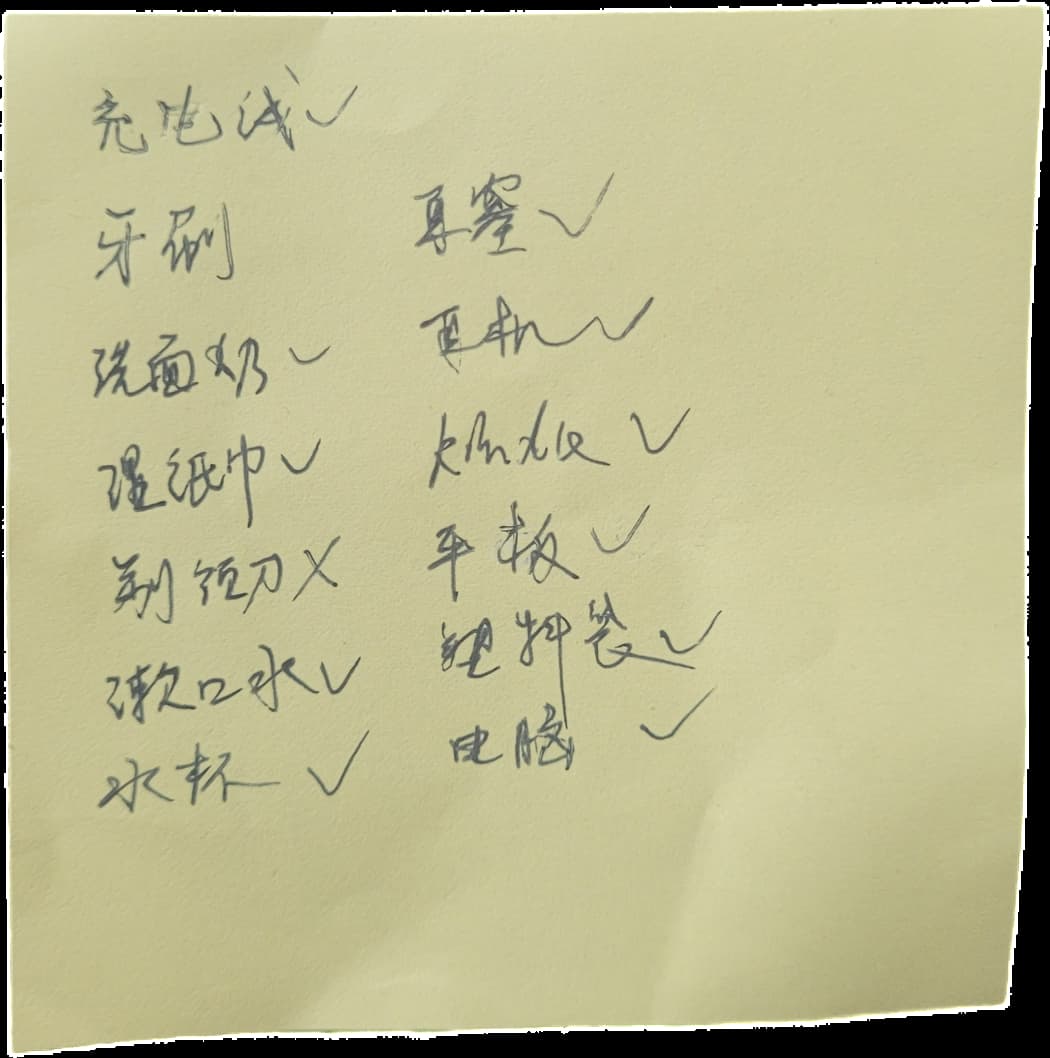 充电线✓
牙刷
洗面奶✓
湿纸巾✓
剃须刀✗
漱口水✓
水杯✓
耳塞✓
耳机✓
平板✓
塑料袋✓
电脑✓